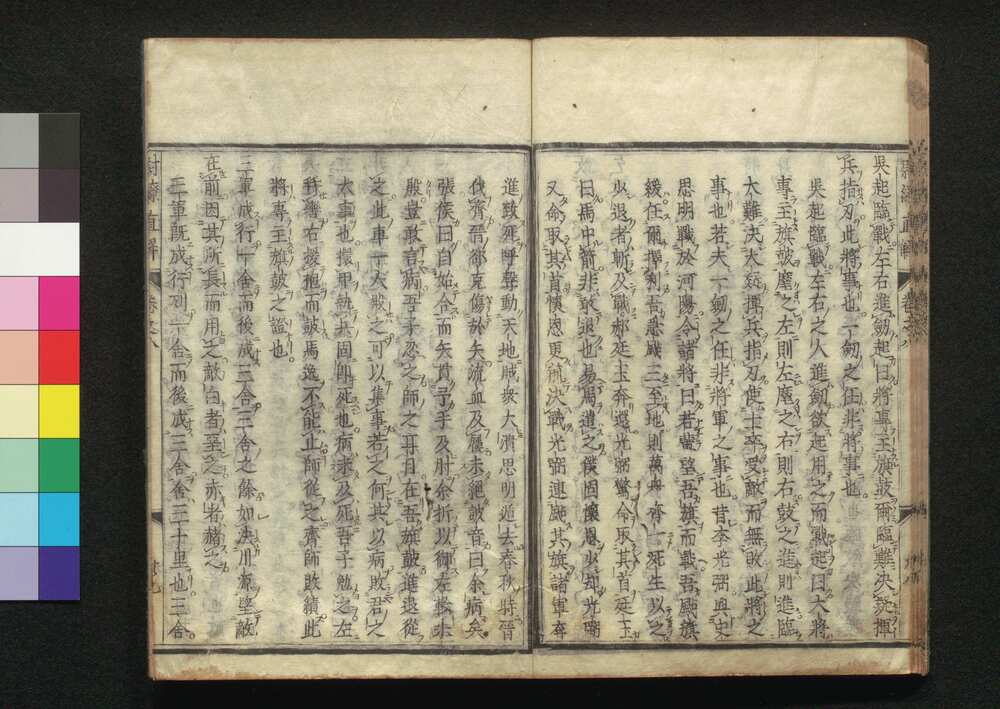 吳起臨戰左右進劒起曰將專主旗鼓爾臨難決疑揮
兵指刃此將事也一劒之任非將事也
吳起臨戰左右之人進劒欲起用之而戰起曰大將
專主旗鼓麾之左則左麾之右則右鼓之進則進臨
大難決大疑揮兵指刃使士卒受敵而無敗此將之
事也若夫一劒之任非將軍之事也昔李光弼與史
思明戰於河陽令諸將曰若等望吾旗而戰吾颭旗
緩任爾擇利吾急颭三至地則萬衆齊一死生以之
少退者斬及戰郝廷玉奔還光弼驚命取其首廷玉
曰馬中箭非敢退也易馬遣之僕固懷恩少却光弼
又命取其首懷恩更前決戰光弼連颭其旗諸軍奔
進鼓死呼聲動天地賊衆大潰思明遁去春秋時晉
伐齊晉郤克傷於矢流血及屨未絕鼓音曰余病矣
張侯曰自始合而矢貫予手及肘余折以御左輪朱
殷豈敢言病吾子忍之師之耳目在吾旗鼓進退從
之此車一人殿之可以集事若之何其以病敗君之
大事也擐甲執兵固即死也病未及死吾子勉之左
幷轡右援枹而鼓馬逸不能止師從之齊師敗績此
將專主旗鼓之謂也
三軍成行一舍而後成三舍三舍之餘如決川源望敵
在前因其所長而用之敵白者堊之赤者赭之
三軍既成行列一舍而後成三舍舍三十里也三舍
尉繚直解 卷之八